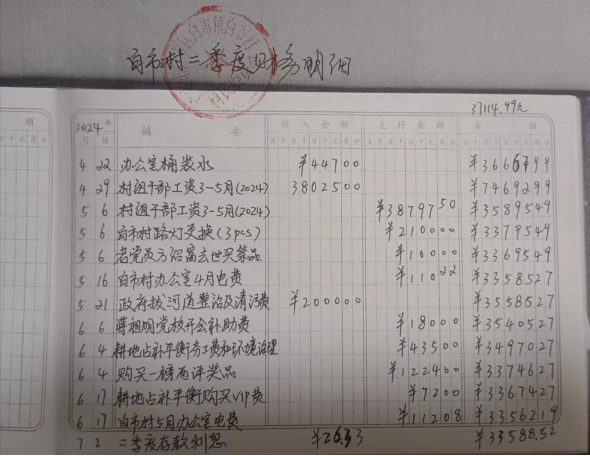 白市村二季度财务明细
37114.99元
2024年 摘 要 收入金额 支付金额 金额
月 日
4 22 办公室桶装水 ¥44700 ¥3666799
4 29 村组干部工资3-5月(2024) 3802500 ¥7469299
5 6 村组干部工资3-5月(2024) ¥3879750 ¥3589549
5 6 白市村路灯更换(3pcs) ¥210000 ¥3379549
5 6 老党员方绍富去世买祭品 ¥10000 ¥3369549
5 16 白市村办公室4月电费 ¥11022 ¥3358527
5 21 政府拔河道整治及清污费 ¥200000 ¥3558527
6 6 蒋祖明党校开会补助费 ¥18000 ¥3540527
6 4 耕地占补平衡务工费和环境治理 ¥43500 ¥3497027
6 4 购买一榜两评奖品 ¥122400 ¥3374627
6 17 耕地占补平衡购买VIP费 ¥7200 ¥3367427
6 17 白市村5月办公室电费 ¥11208 ¥3356219
7 2 二季度存款利息 ¥26.33 ¥33588.52